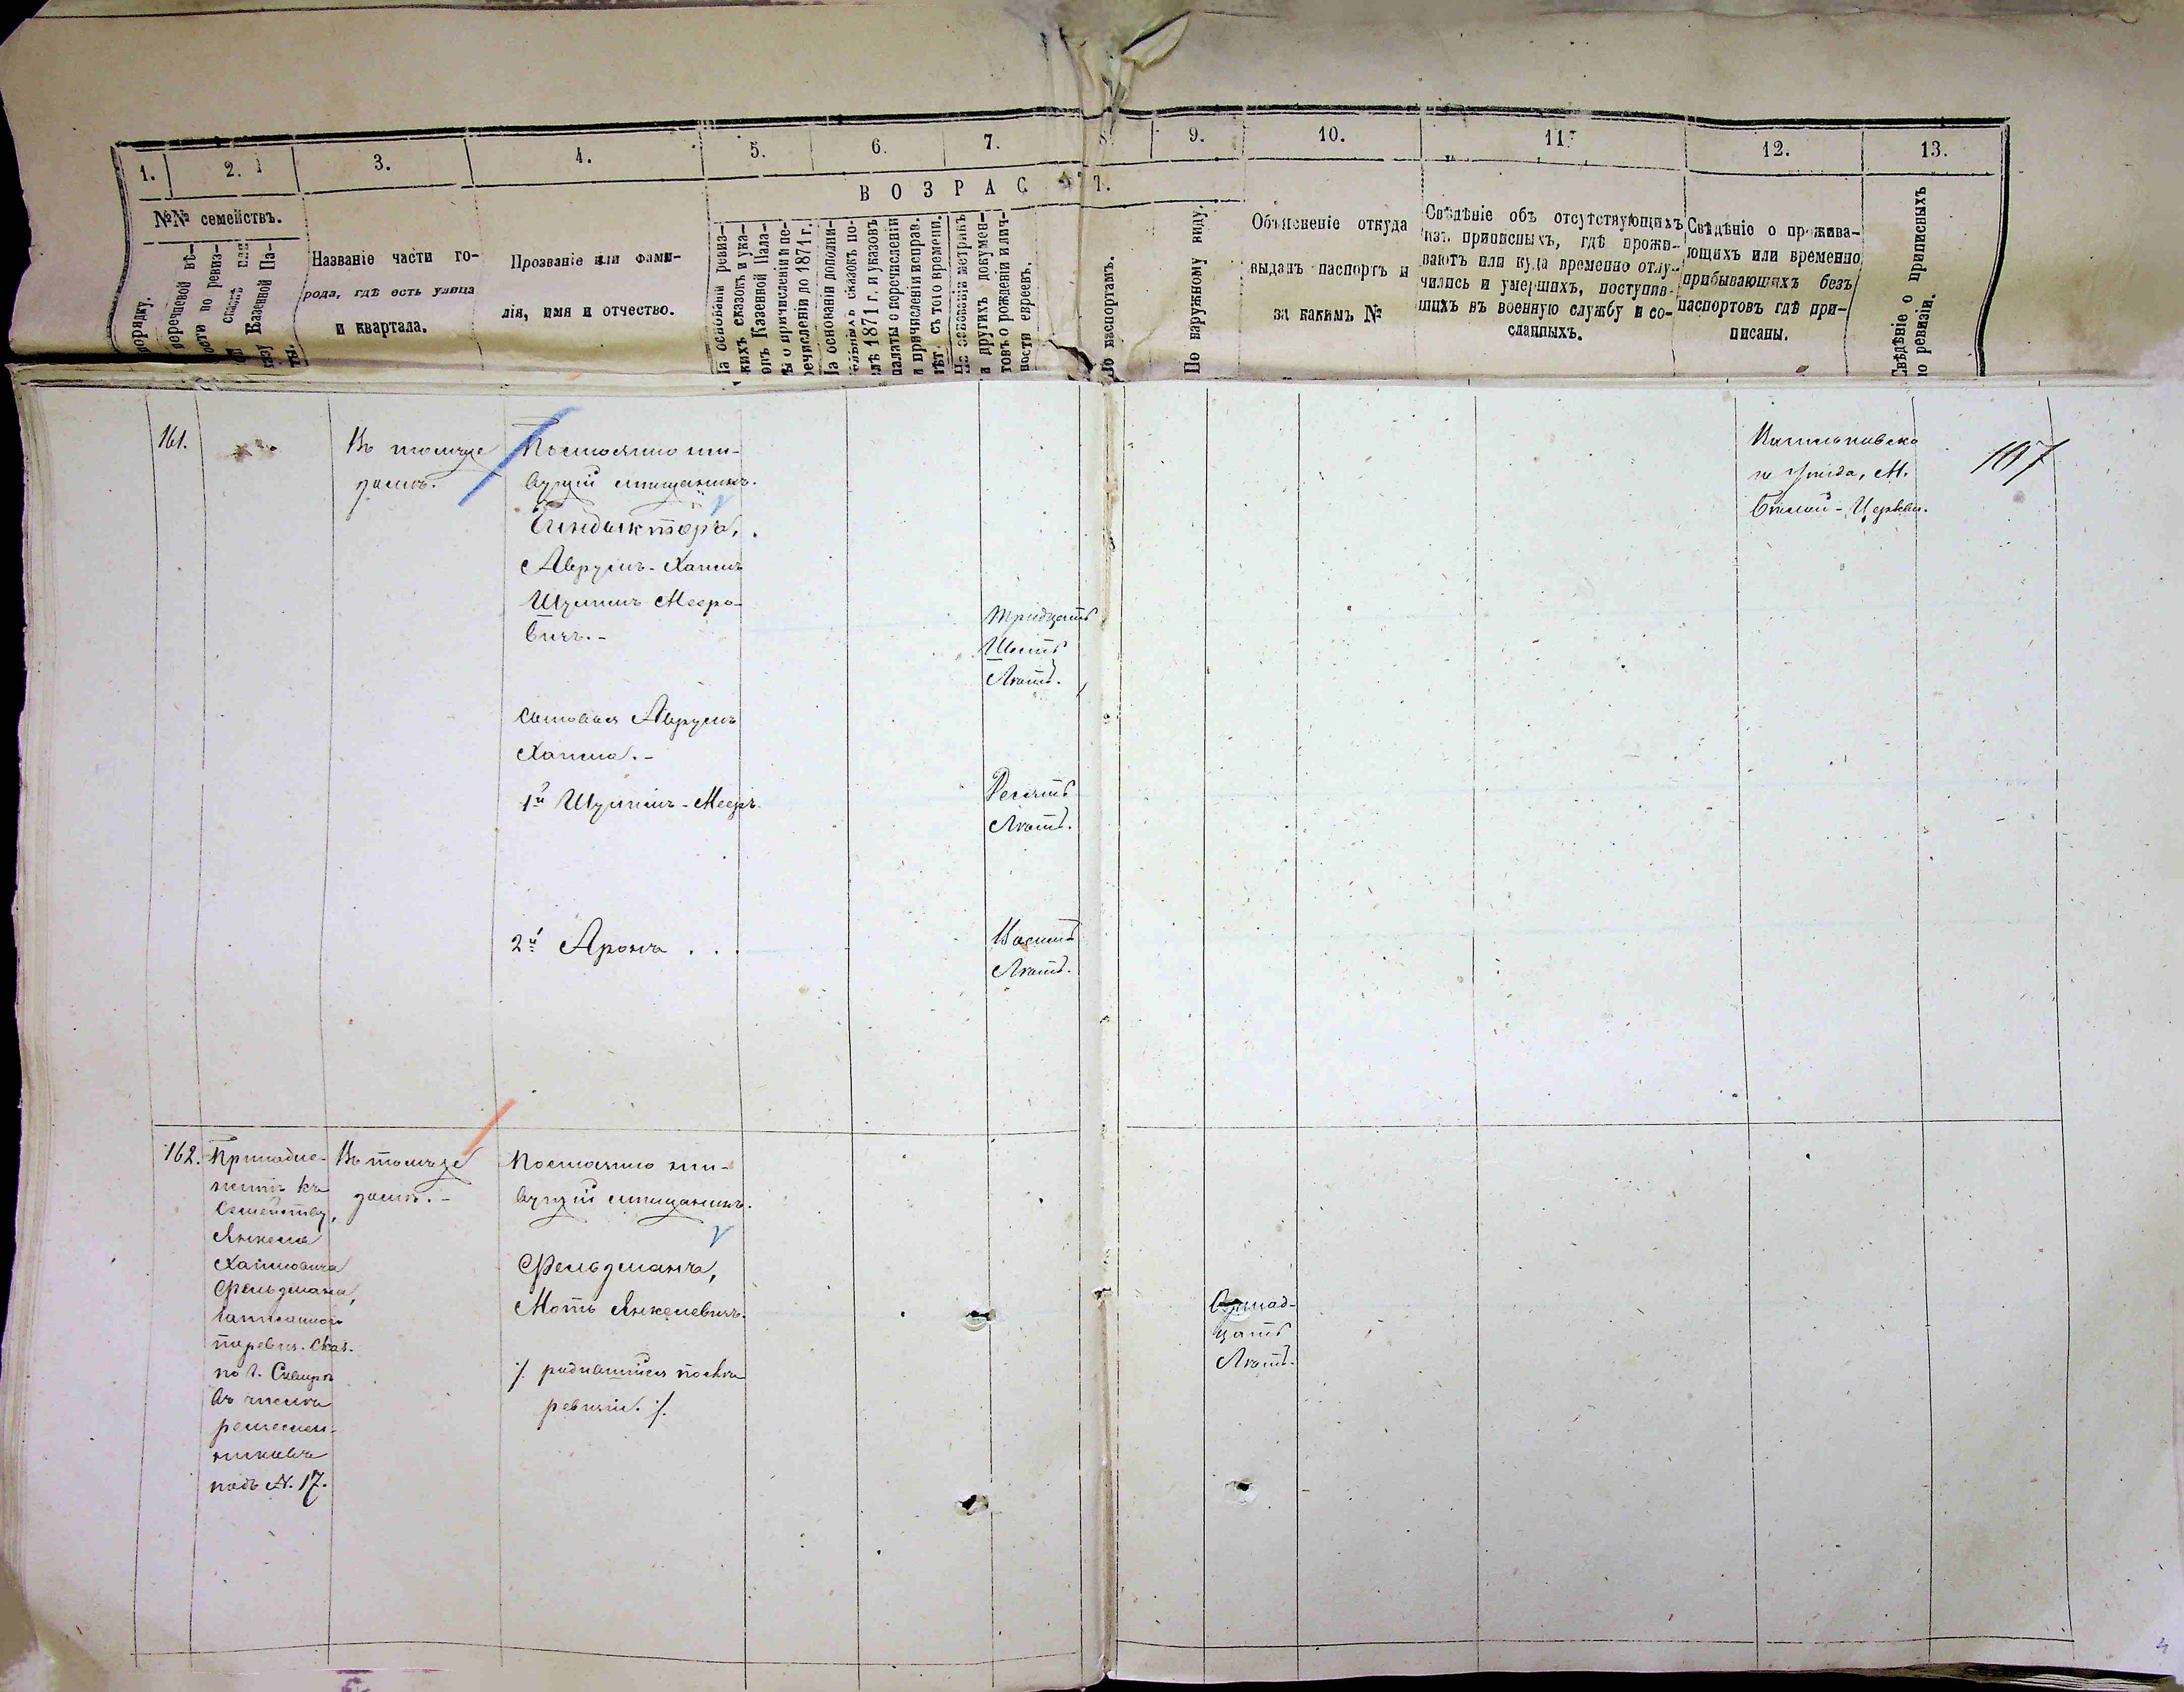 1. 2. 3. 4. 5. 6. 7. 8. 9. 10. 11. 12. 13.
ВОЗРАСТ.
№№ семействъ.
порядку.
перечневой вѣ-
ости по ревиз-
Казенной Па-
ты.
Названіе части го-
рода, гдѣ есть улица
и квартала.
Прозваніе или фами-
лія, имя и отчество.
На основаніи ревиз-
кихъ сказокъ и ука-
овъ Казенной Пала-
ы о причисленіи и по-
речисленіи до 1871 г.
На основаніи дополни-
ельныхъ сказокъ по-
слѣ 1871 г. и указовъ
палаты о перечисленіи
и причисленіи исправ.
лѣт. съ того времени.
По еврейскій метрикъ
и другихъ докумен-
товъ о рожденіи и лич-
ности евреевъ.
По паспортамъ.
По наружному виду.
Объясненіе откуда
выданъ паспортъ и
за какимъ №
Свѣдѣніе объ отсутствующихъ
изъ приписныхъ, гдѣ прожи-
ваютъ или куда временно отлу-
чились и умершихъ, поступив-
шихъ въ военную службу и со-
сланныхъ.
Свѣдѣніе о прожива-
ющихъ или временно
прибывающихъ безъ
паспортовъ гдѣ при-
писаны.
Свѣдѣніе о приписныхъ
по ревизіи.
161.
Въ томъ же
домѣ.
Постоянно жи-
вущій мѣщанинъ.
Биндыктора,
Аврумъ-Хаимъ
Шулимъ Мееро-
вичъ.-
Тридцать
Шесть
Лѣтъ.
Сыновья Аврумъ
Хаима.-
1й Шулимъ-Мееръ
Десять
Лѣтъ.
2й Аронъ . . .
Восемь
Лѣтъ.
Васильковска
го уѣзда, М.
Бѣлой-Церкви.
107
162.
Принадле-
житъ къ
Семейству,
Янкеля
Хаимовича
Фельдмана,
записанного
по ревиз. сказ.
по г. Сквирѣ
въ числѣ
ремеслен-
никовъ
подъ N. 17.
Въ томъ же
домѣ.-
Постоянно жи-
вущій мѣщанинъ.
Фельдманъ,
Моть Янкелевичъ.
/. родившійся послѣ
ревизіи. /.
надцать
Лѣтъ.